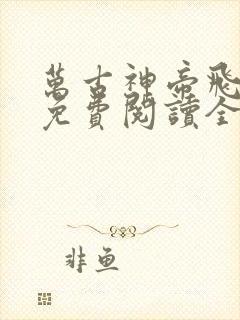 萬古神帝飛
免費閱讀全
非魚